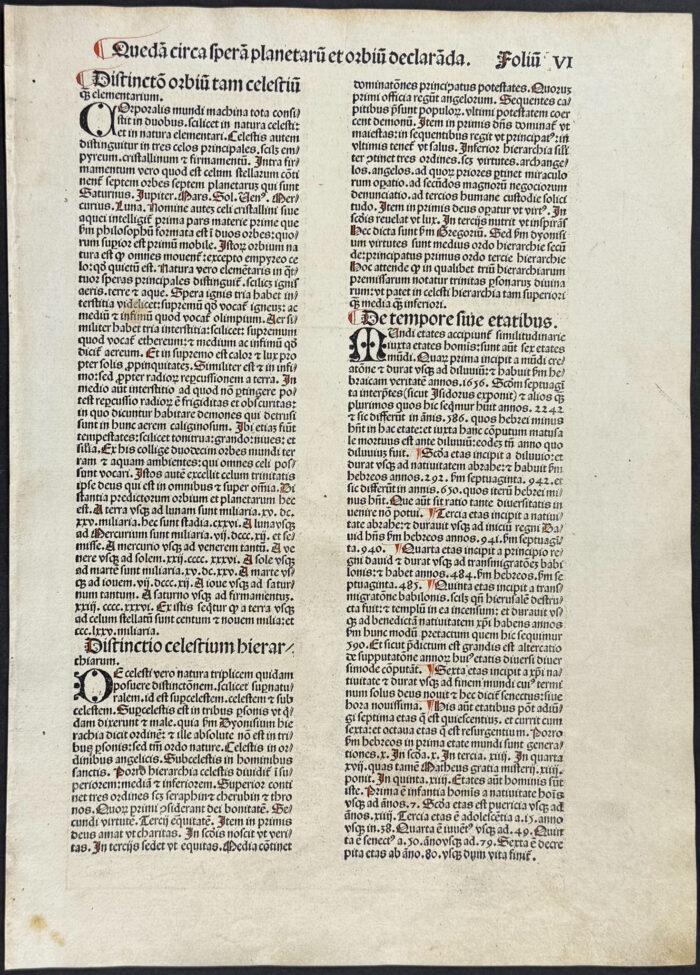 Quedã circa sperã planetarũ et orbiũ declarãda. Foliũ VI
Distinctõ orbiũ tam celestiũ
q̃ elementarium.
COrporalis mundi machina tota consi
stit in duobus. scilicet in natura celesti:
et in natura elementari. Celestis autem
distinguitur in tres celos principales. scilz em
pyreum. cristallinum & firmamentũ. Intra fir
mamentum vero quod est celum stellarum cõti
nent̃ septem orbes septem planetarũ qui sunt
Saturnus. Jupiter. Mars. Sol. Uen⁹. Mer
curius. Luna. Nomine autez celi cristallini siue
aquei intelligit̃ prima pars materie prime que
fm philosophũ formata est ĩ duos orbes: quo
rum supior est primũ mobile. Istoꝝ orbium na
tura est ꝙ omnes mouent̃: excepto empyreo ce
lo: ꝙ quietũ est. Natura vero elemẽtaris in q̃t
tuor speras principales distinguit̃. scilicz ignis
aeris. terre & aque. Spera ignis tria habet in
terstitia videlicet: supremũ qđ vocat̃ igneus: ac
mediũ & infimũ quod vocat̃ olimpium. Aer si
militer habet tria interstitia: scilicet: supremum
quod vocat̃ ethereum: & medium ac infimũ qđ
dicit̃ aereum. Et in supremo est calor & lux pro
pter solis ꝓpinquitatez. Similiter est & in infi
mo: sed ꝓpter radioꝝ repcussionem a terra. In
medio aut̃ interstitio ad quod nõ ꝑtingere po
test repcussio radioꝝ ẽ frigiditas et obscuritas:
in quo dicuntur habitare demones qui detrusi
sunt in hunc aerem caliginosum. Ibi etiaz fiũt
tempestates: scilicet tonitrua: grando: niues: et
similia. Ex his collige duodecim orbes mundi ter
ram & aquam ambientes: qui omnes celi pos
sunt vocari. Istos autẽ excellit celum trinitatis
ipse deus qui est in omnibus & super omĩa. Di
stantia predictorum orbium et planetarum hec
est. A terra vsqꝫ ad lunam sunt miliaria. xv. dc.
xxv. miliaria. hec sunt stadia. cxxvi. A luna vsqꝫ
ad Mercurium sunt miliaria. vij. dccc. xij. et se
misse. A mercurio vsqꝫ ad venerem tantũ. A ve
nere vsqꝫ ad solem. xxij. cccc. xxxvi. A sole vsqꝫ
ad martẽ sunt miliaria. xv. dc. xxv. A marte vs
qꝫ ad iouem. vij. dccc. xij. A ioue vsqꝫ ad satur
num tantum. A saturno vsqꝫ ad firmamentuz.
xxiij. cccc. xxxvi. Ex istis seqt̃ur ꝙ a terra vsqꝫ
ad celum stellatũ sunt centum & nouem milia: et
ccc. lxxv. miliaria.
Distinctio celestium hierar
thiarum.
DE celesti vero natura triplicem quidam
posuere distinctõnem. scilicet supnatu
ralem. id est supcelestem. celestem & sub
celestem. Supcelestis est in tribus ꝑsonis vt q̃
dam dixerunt & male. quia fm Dyonisium hie
rachia dicit ordinẽ: & ille absolute nõ est in tri
bus ꝑsonis: sed tm̃ ordo nature. Celestis in or
dinibus angelicis. Subcelestis in hominibus
sanctis. Porro hierarchia celestis diuidit̃ ĩ su
periorem: mediã & inferiorem. Superior conti
net tres ordines scz seraphin: cherubin & thro
nos. Quoꝝ primi ꝯsiderant dei bonitatẽ. Se
cundi virtutẽ. Tercij equitatẽ. Item in primis
deus amat vt charitas. In scđis noscit vt veri
tas. In tercijs sedet vt equitas. Media cõtinet
dominatõnes principatus potestates. Quorus
primi officia regũt angelorum. Sequentes ca
pitibus p̃sunt populoꝝ. vltimi potestatem coer
cent demonũ. Item in primis dñs dominat̃ vt
maiestas: in sequentibus regit vt principatus: in
vltimis tenet̃ vt salus. Inferior hierarchia sili
ter ꝯtinet tres ordines. scz virtutes. archange
los. angelos. ad quoꝝ priores ꝑtinet miraculo
rum oꝑatio. ad secũdos magnorũ negociorum
denunciatio. ad tercios humane custodie solici
tudo. Item in primis deus oꝑatur vt virt⁹. In
scđis reuelat vt lux. In tercijs nutrit vt inspirãs
Hec dicta sunt fm Gregoriũ. Sed fm dyonisi
um virtutes sunt medius ordo hierarchie secũ
de: principatus primus ordo tercie hierarchie
Hoc attende ꝙ in qualibet triũ hierarchiarum
premissarum notatur trinitas ꝑsonarũ diuina
rum: vt patet in celesti hierarchia tam superiori
q̃ media q̃ inferiori.
De tempore siue etatibus.
MUndi etates accipiunt̃ similitudinarie
iuxta etates homis: sunt aũt sex etates
mũdi. Quaꝝ prima incipit a mũdi cre
atõne & durat vsqꝫ ad diluuiũ: & habuit fm he
braicam veritatẽ annos. 1656. Scđm septuagi
ta interp̃tes (sicut Isidorus exponit) & alios q̃s
plurimos quos hic seqm̃ur hũit annos. 2242
& sic differũt in ãnis. 586. quos hebrei minus
hñt in hac etate: et iuxta hanc cõputum matusa
le mortuus est ante diluuiũ: eodez tñ anno quo
diluuiuz fuit. Scđa etas incipit a diluuio: et
durat vsqꝫ ad natiuitatem abrahe: & habuit fm
hebreos annos. 292. fm septuaginta. 942. et
sic differũt in annis. 650. quos iterũ hebrei mi
nus hñt. Que aũt sit ratio tante diuersitatis in
uenire nõ potui. Tercia etas incipit a natiui
tate abrahe: & durauit vsqꝫ ad iniciũ regni Da
uid hñs fm hebreos annos. 941. fm septuagi
ta. 940. Quarta etas incipit a principio re
gni dauid & durat vsqꝫ ad transmigratõez babi
lonis: et habet annos. 484. fm hebreos. fm se
ptuaginta. 485. Quinta etas incipit a trans
migratõne babilonis. scilz qñ hierusalẽ destru
cta fuit: & templũ in ea incensum: et durauit vs
qꝫ ad benedictã natiuitatem xp̃i habens annos
fm hunc modũ pretactum quem hic sequimur
590. Et sicut p̃dictum est grandis est altercatio
de supputatõne annoꝝ hui⁹ etatis diuersi diuer
simode cõputãt. Sexta etas incipit a xp̃i na
tiuitate & durat vsqꝫ ad finem mundi cui⁹ termi
num solus deus nouit & hec dicit̃ senectus: siue
hora nouissima. His aũt etatibus põt adiũ
gi septima etas q̃ est quiescentiuz. et currit cum
sexta: et octaua etas q̃ est resurgentium. Porro
fm hebreos in prima etate mundi sunt genera
tiones. x. In scđa. x. In tercia. xiiij. In quarta
xvij. quas tamẽ Matheus gratia misterij. xiiij.
ponit. In quinta. xiiij. Etates aũt hominis sũt
iste. Prima ẽ infantia homĩs a natiuitate homĩs
vsqꝫ ad ãnos. 7. Scđa etas est puericia vsqꝫ ad
ãnos. xiiij. Tercia etas ẽ adolescẽtia a. 15. anno
vsqꝫ in. 38. Quarta ẽ iuuẽt⁹ vsqꝫ ad. 49. Quin
ta ẽ senect⁹ a. 50. ãno vsqꝫ ad. 79. Sexta ẽ decre
pita etas ab ãno. 80. vsqꝫ dum vita finit̃.